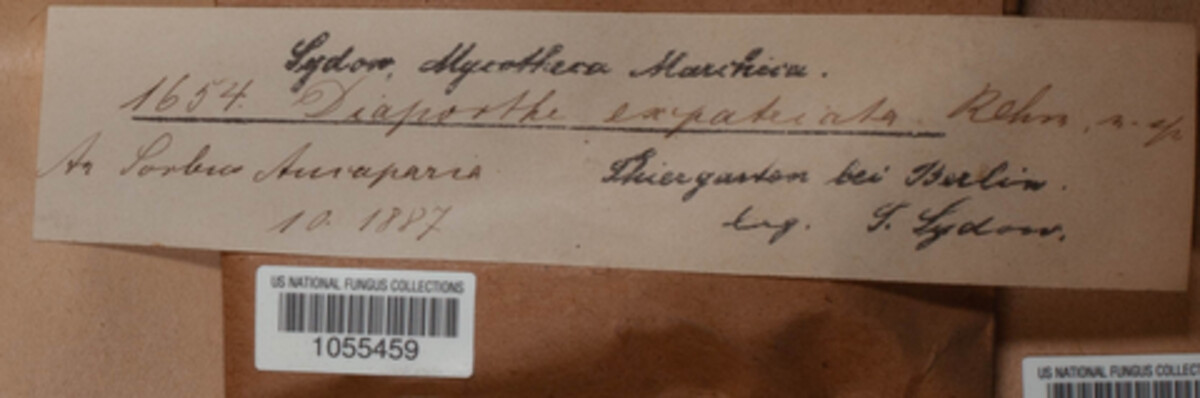 Sydow, Mycotheca Marchica.
1654. Diaporthe expatriata Rehm, n. sp.
An Sorbus Aucuparia
Thiergarten bei Berlin.
10. 1887
leg. P. Sydow.
US NATIONAL FUNGUS COLLECTIONS
1055459
US NATIONAL FUNGUS COLLECT